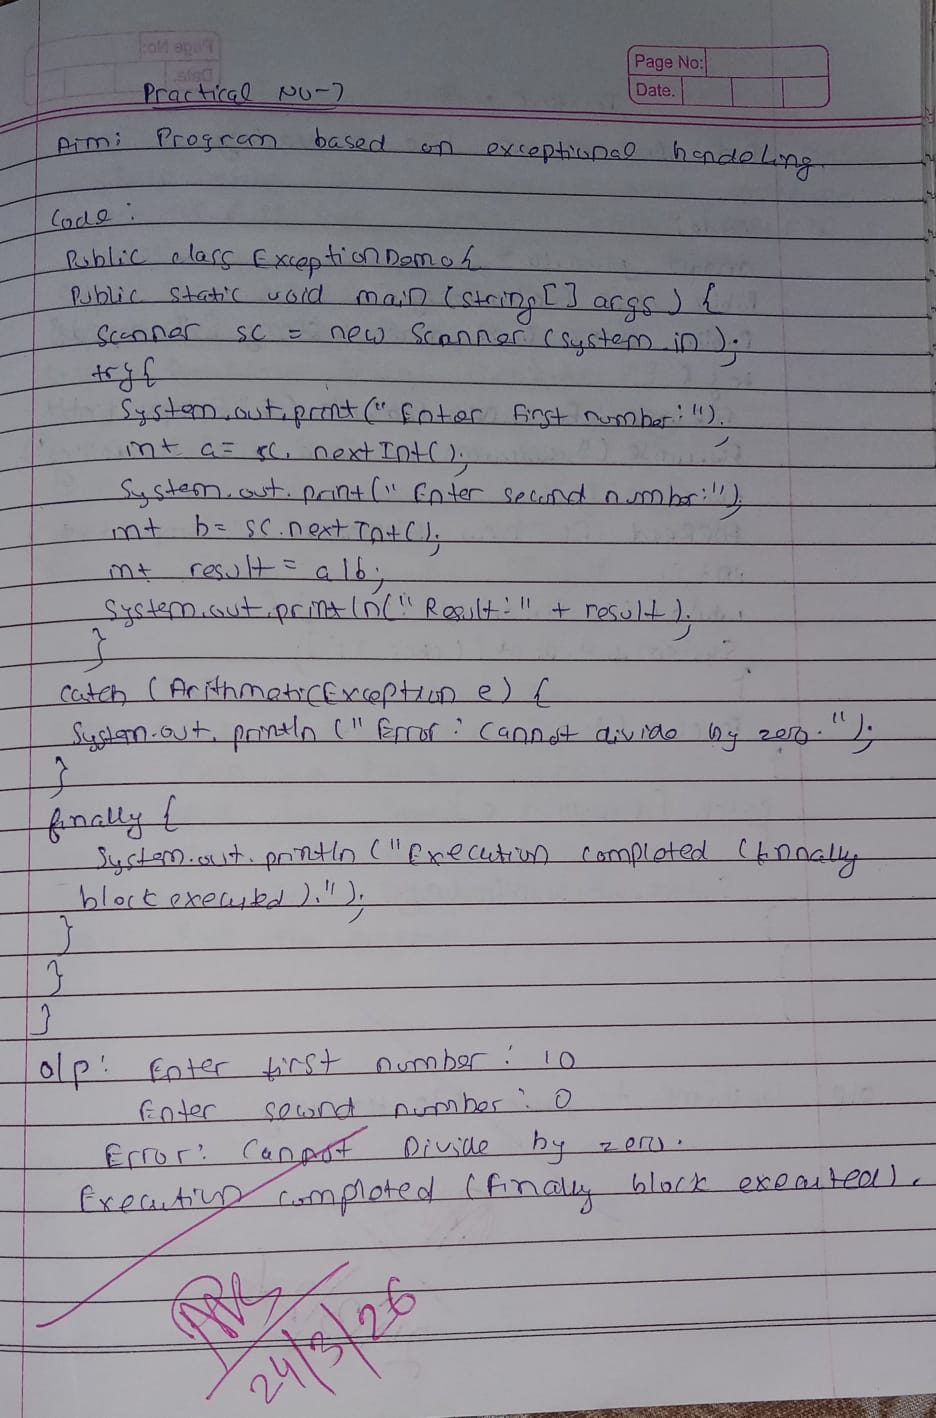 Page No:
Date.
Practical No-7
Aim: Program based on exceptional handeling.
Code:
Public class ExceptionDemo{
Public static void main (string[] args) {
Scanner sc = new Scanner (system.in);
try{
System.out.print("Enter first number:");
int a= sc. nextInt();
System.out.print("Enter second number:");
int b= sc.nextInt();
int result= a/b;
System.out.println("Result:" + result);
}
catch (ArithmaticException e) {
System.out.println ("Error: Cannot divide by zero.");
}
finally {
System.out.println ("Execution completed (finally
block executed).");
}
}
}
o/p: Enter first number: 10
Enter second number: 0
Error: Cannot Divide by zero.
Execution completed (finally block executed).
24/3/26